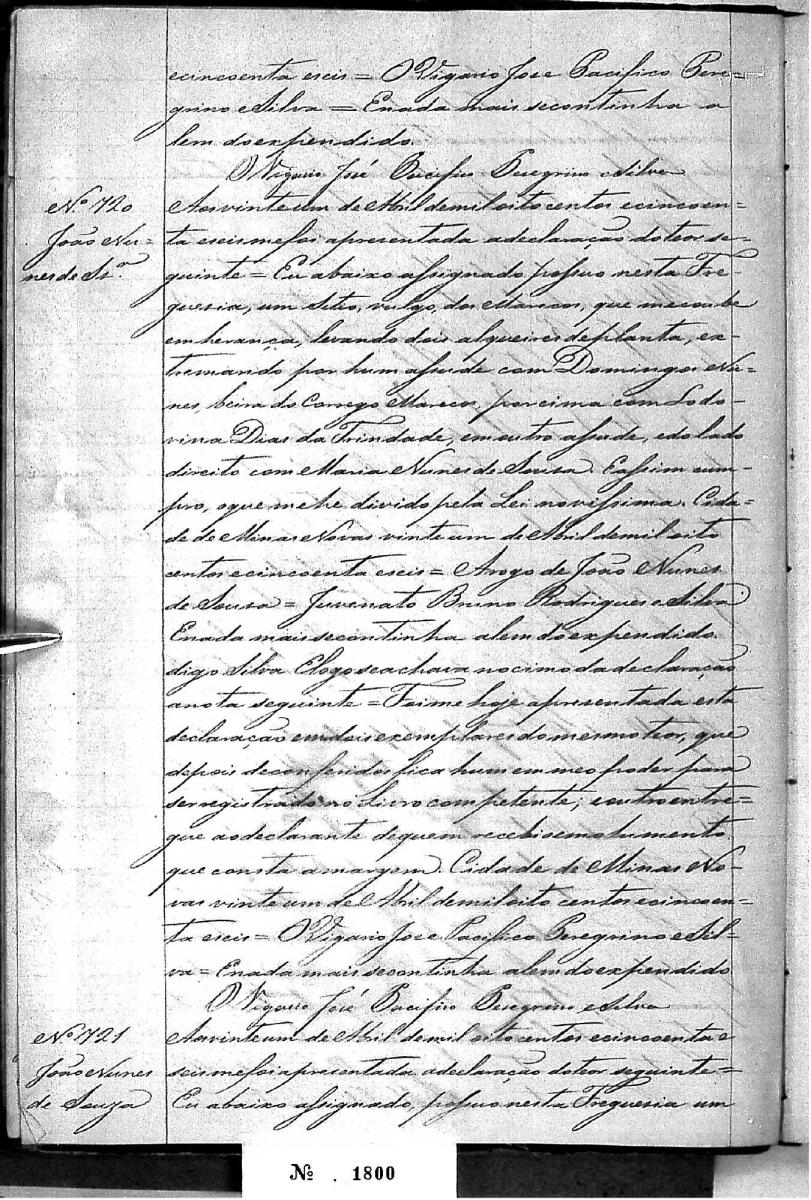 ecincoenta eseis = O Vigario Jose Pacifico Pere=
grino e Silva = Enada mais secontinha a
lem doexpendido.
O Vigario José Pacifico Peregrino e Silva
Nº 720
João Nu-
nes de Sª
Aosvinteum de Abril demiloitocentos ecincoen-
ta eseis mefoi apresentada adeclaração doteor se-
guinte = Eu abaixo assignado possuo nesta Fre-
guesia, um Sitio, vulgo, dos Marecos, que mecoube
emherança, levando dois alqueires deplanta, ex-
tremando por hum assude com Domingos Nu-
nes, beira do Corrego Marecos, porcima com Lodo-
vina Dias da Trindade, emoutro assude, edo lado
direito com Maria Nunes de Sousa. Eassim cum-
pro, oque mehe divido pela Lei novissima. Cida-
de de Minas Novas vinte um de Abril demiloito
centos ecincoenta eseis = Arogo de João Nunes
de Sousa = Juvenato Bruno Rodrigues e Silva
Enada mais secontinha alem doexpendido.
digo Silva Elogo seachava nocimo dadeclaração
anota seguinte = Foime hoje apresentada esta
declaração emdois exemplares do mesmo teor, que
depois deconferidos fica hum em meo poder para
serregistrado no Livro competente; eoutro entre=
gue aodeclarante dequem recebi oemolumento
que consta amargem. Cidade de Minas No-
vas vinte um de Abril demiloito centos ecincoen-
ta eseis = O Vigario Jose Pacifico Peregrino e Sil-
va = Enada mais secontinha alem doexpendido
O Vigario José Pacifico Peregrino e Silva
Nº 721
João Nunes
de Souza
Aosvinteum de Abril demil oitocentos ecincoenta e
seis mefoi apresentada adeclaração doteor seguinte=
Eu abaixo assignado, possuo nesta Freguesia um
№ . 1800